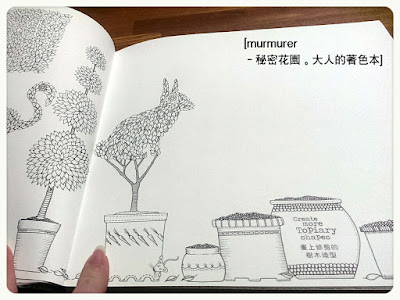 [murmurer
- 秘密花園。大人的著色本]
Create
more
ToPiary
shapes
畫上修剪的
樹木造型